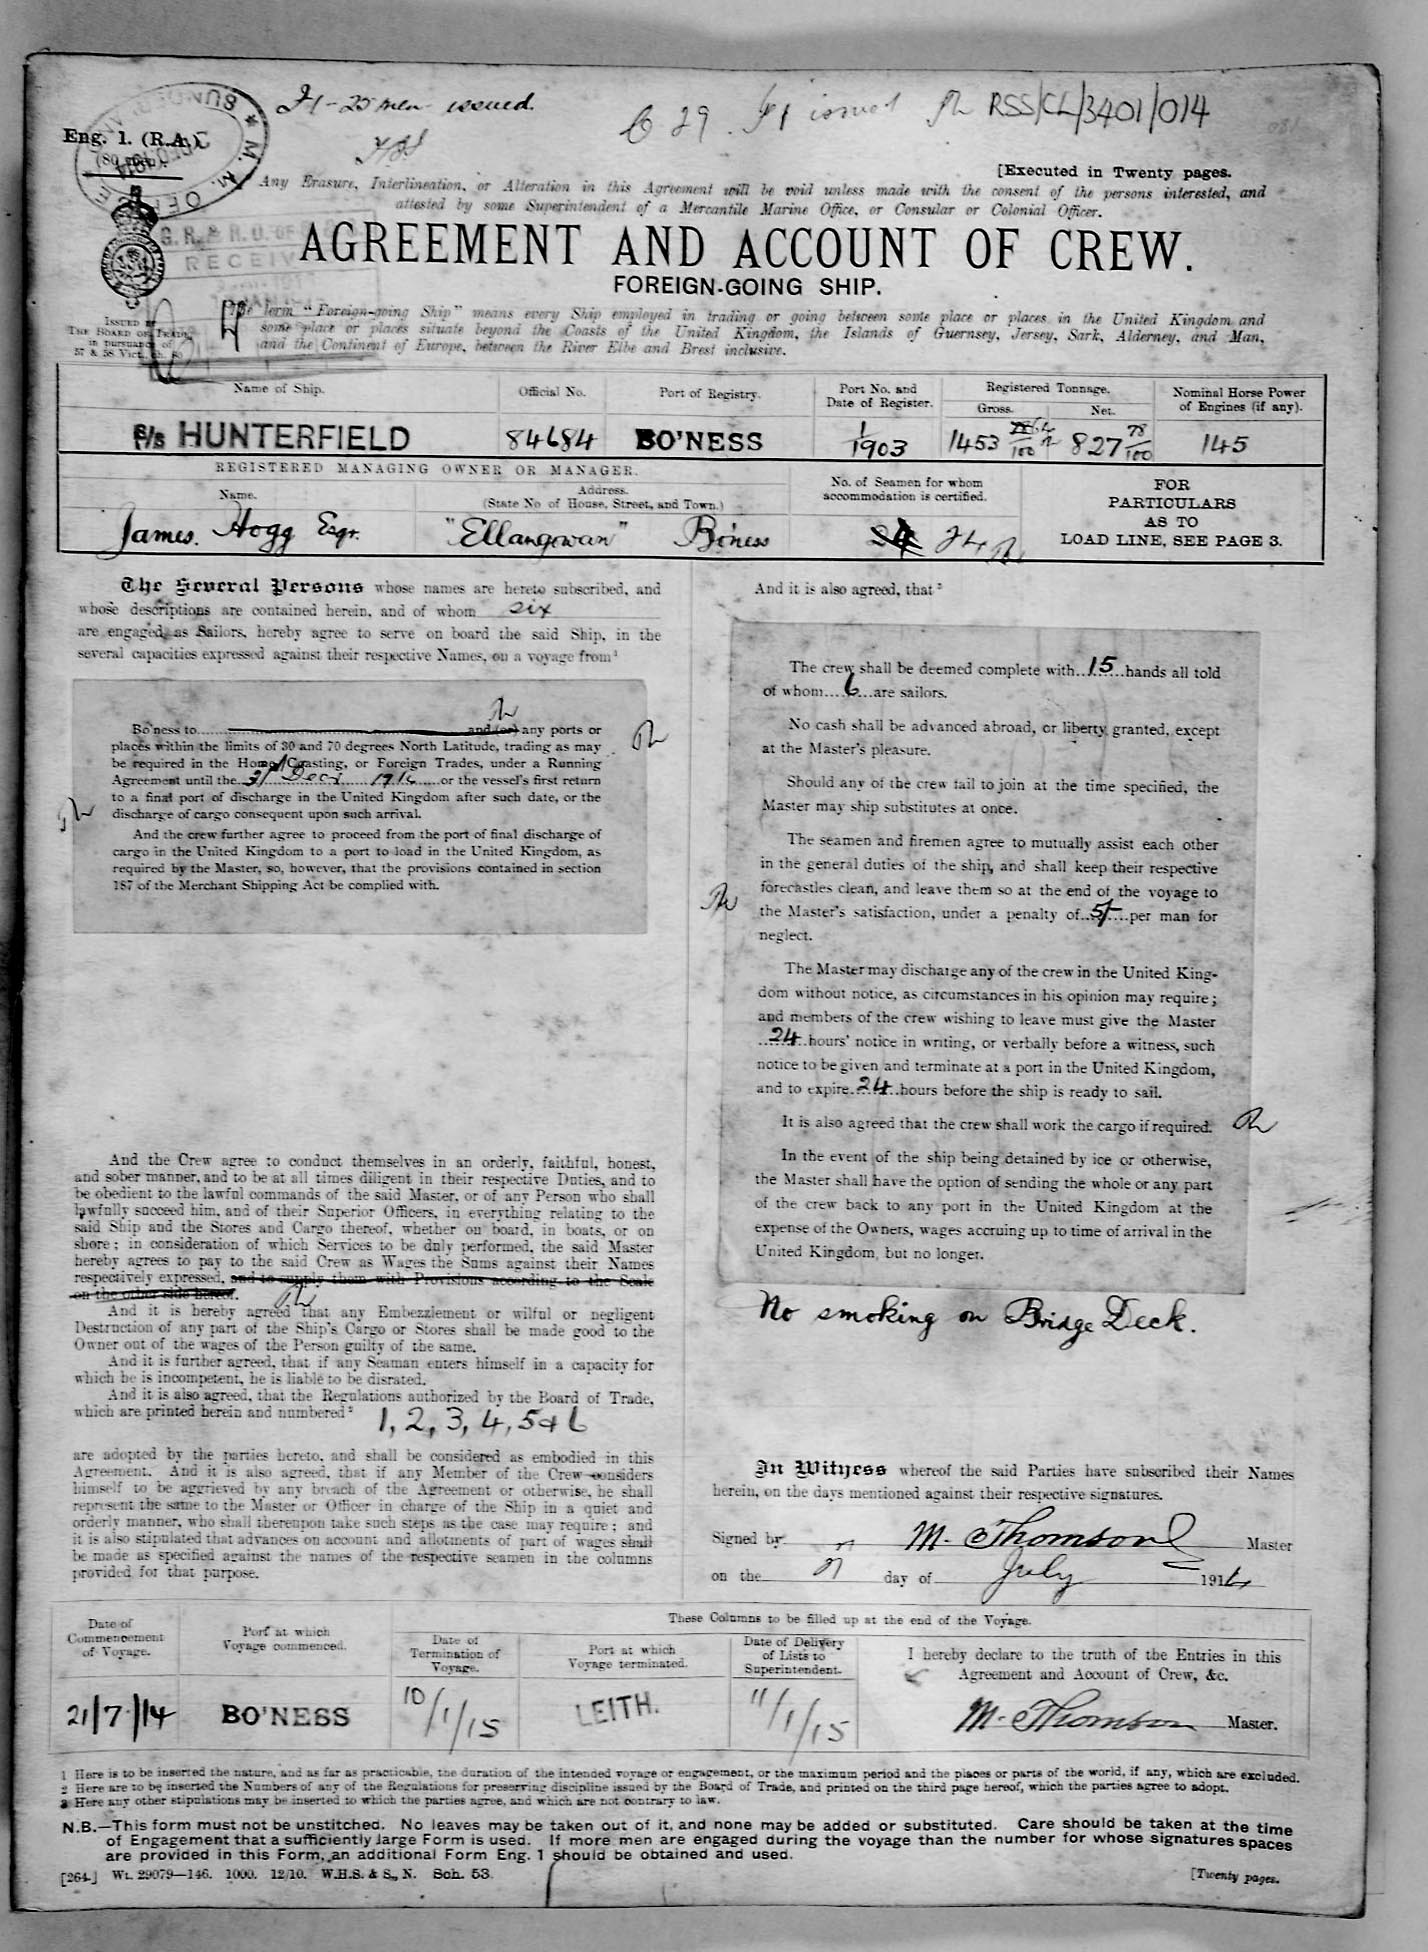 25 men issued.
issued RSS/CL/3401/014
Eng. 1. (R.A.)
[Executed in Twenty pages.
Any Erasure, Interlineation, or Alteration in this Agreement will be void unless made with the consent of the persons interested, and
attested by some Superintendent of a Mercantile Marine Office, or Consular or Colonial Officer.
AGREEMENT AND ACCOUNT OF CREW.
FOREIGN-GOING SHIP.
ISSUED BY
THE BOARD OF TRADE
in pursuance of
57 & 58 Vict., ch. 60
The term "Foreign-going Ship" means every Ship employed in trading or going between some place or places in the United Kingdom and
some place or places situate beyond the Coasts of the United Kingdom, the Islands of Guernsey, Jersey, Sark, Alderney, and Man,
and the Continent of Europe, between the River Elbe and Brest inclusive.
Name of Ship. Official No. Port of Registry. Port No. and Date of Register. Registered Tonnage. Gross. Net. Nominal Horse Power of Engines (if any).
S/S HUNTERFIELD 84684 BO'NESS 1/1903 1453 827 78/100 145
REGISTERED MANAGING OWNER OR MANAGER.
Name. Address. (State No of House, Street, and Town.) No. of Seamen for whom accommodation is certified.
FOR
PARTICULARS
AS TO
LOAD LINE, SEE PAGE 3.
James Hogg Esqr. "Ellangowan" Bo'ness 24 24
The Several Persons whose names are hereto subscribed, and
whose descriptions are contained herein, and of whom six
are engaged as Sailors, hereby agree to serve on board the said Ship, in the
several capacities expressed against their respective Names, on a voyage from¹
Bo'ness to and (or) any ports or
places within the limits of 30 and 70 degrees North Latitude, trading as may
be required in the Home Coasting, or Foreign Trades, under a Running
Agreement until the 31st Decr 1914 or the vessel's first return
to a final port of discharge in the United Kingdom after such date, or the
discharge of cargo consequent upon such arrival.
And the crew further agree to proceed from the port of final discharge of
cargo in the United Kingdom to a port to load in the United Kingdom, as
required by the Master, so, however, that the provisions contained in section
187 of the Merchant Shipping Act be complied with.
And the Crew agree to conduct themselves in an orderly, faithful, honest,
and sober manner, and to be at all times diligent in their respective Duties, and to
be obedient to the lawful commands of the said Master, or of any Person who shall
lawfully succeed him, and of their Superior Officers, in everything relating to the
said Ship and the Stores and Cargo thereof, whether on board, in boats, or on
shore; in consideration of which Services to be duly performed, the said Master
hereby agrees to pay to the said Crew as Wages the Sums against their Names
respectively expressed, and to supply them with Provisions according to the Scale
on the other side hereof.
And it is hereby agreed that any Embezzlement or wilful or negligent
Destruction of any part of the Ship's Cargo or Stores shall be made good to the
Owner out of the wages of the Person guilty of the same.
And it is further agreed, that if any Seaman enters himself in a capacity for
which he is incompetent, he is liable to be disrated.
And it is also agreed, that the Regulations authorized by the Board of Trade,
which are printed herein and numbered² 1, 2, 3, 4, 5 & 6
are adopted by the parties hereto, and shall be considered as embodied in this
Agreement. And it is also agreed, that if any Member of the Crew considers
himself to be aggrieved by any breach of the Agreement or otherwise, he shall
represent the same to the Master or Officer in charge of the Ship in a quiet and
orderly manner, who shall thereupon take such steps as the case may require; and
it is also stipulated that advances on account and allotments of part of wages shall
be made as specified against the names of the respective seamen in the columns
provided for that purpose.
And it is also agreed, that ³
The crew shall be deemed complete with 15 hands all told
of whom 6 are sailors.
No cash shall be advanced abroad, or liberty granted, except
at the Master's pleasure.
Should any of the crew fail to join at the time specified, the
Master may ship substitutes at once.
The seamen and firemen agree to mutually assist each other
in the general duties of the ship, and shall keep their respective
forecastles clean, and leave them so at the end of the voyage to
the Master's satisfaction, under a penalty of 5/- per man for
neglect.
The Master may discharge any of the crew in the United King-
dom without notice, as circumstances in his opinion may require;
and members of the crew wishing to leave must give the Master
24 hours' notice in writing, or verbally before a witness, such
notice to be given and terminate at a port in the United Kingdom,
and to expire 24 hours before the ship is ready to sail.
It is also agreed that the crew shall work the cargo if required.
In the event of the ship being detained by ice or otherwise,
the Master shall have the option of sending the whole or any part
of the crew back to any port in the United Kingdom at the
expense of the Owners, wages accruing up to time of arrival in the
United Kingdom, but no longer.
No smoking on Bridge Deck.
In Witness whereof the said Parties have subscribed their Names
herein, on the days mentioned against their respective signatures.
Signed by M. Thomson Master
on the 21 day of July 1914
Date of Commencement of Voyage. Port at which Voyage commenced. These Columns to be filled up at the end of the Voyage.
Date of Termination of Voyage. Port at which Voyage terminated. Date of Delivery of Lists to Superintendent.
I hereby declare to the truth of the Entries in this
Agreement and Account of Crew, &c.
21/7/14 BO'NESS 10/1/15 LEITH. 11/1/15 M. Thomson Master.
1 Here is to be inserted the nature, and as far as practicable, the duration of the intended voyage or engagement, or the maximum period and the places or parts of the world, if any, which are excluded.
2 Here are to be inserted the Numbers of any of the Regulations for preserving discipline issued by the Board of Trade, and printed on the third page hereof, which the parties agree to adopt.
3 Here any other stipulations may be inserted to which the parties agree, and which are not contrary to law.
N.B.—This form must not be unstitched. No leaves may be taken out of it, and none may be added or substituted. Care should be taken at the time
of Engagement that a sufficiently large Form is used. If more men are engaged during the voyage than the number for whose signatures spaces
are provided in this Form, an additional Form Eng. 1 should be obtained and used.
[264] Wt. 29079—146. 1000. 12/10. W.H.S. & S., N. Sch. 53. [Twenty pages.